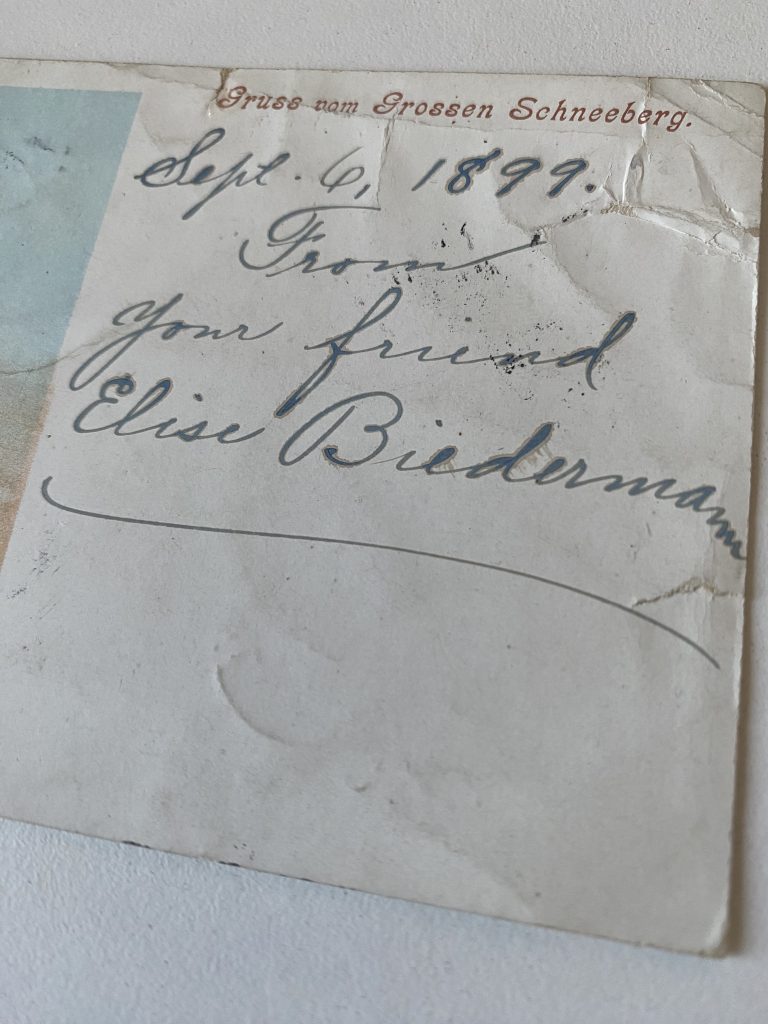 Gruss vom Grossen Schneeberg.
Sept. 6, 1899.
From
your friend
Elise Biedermann